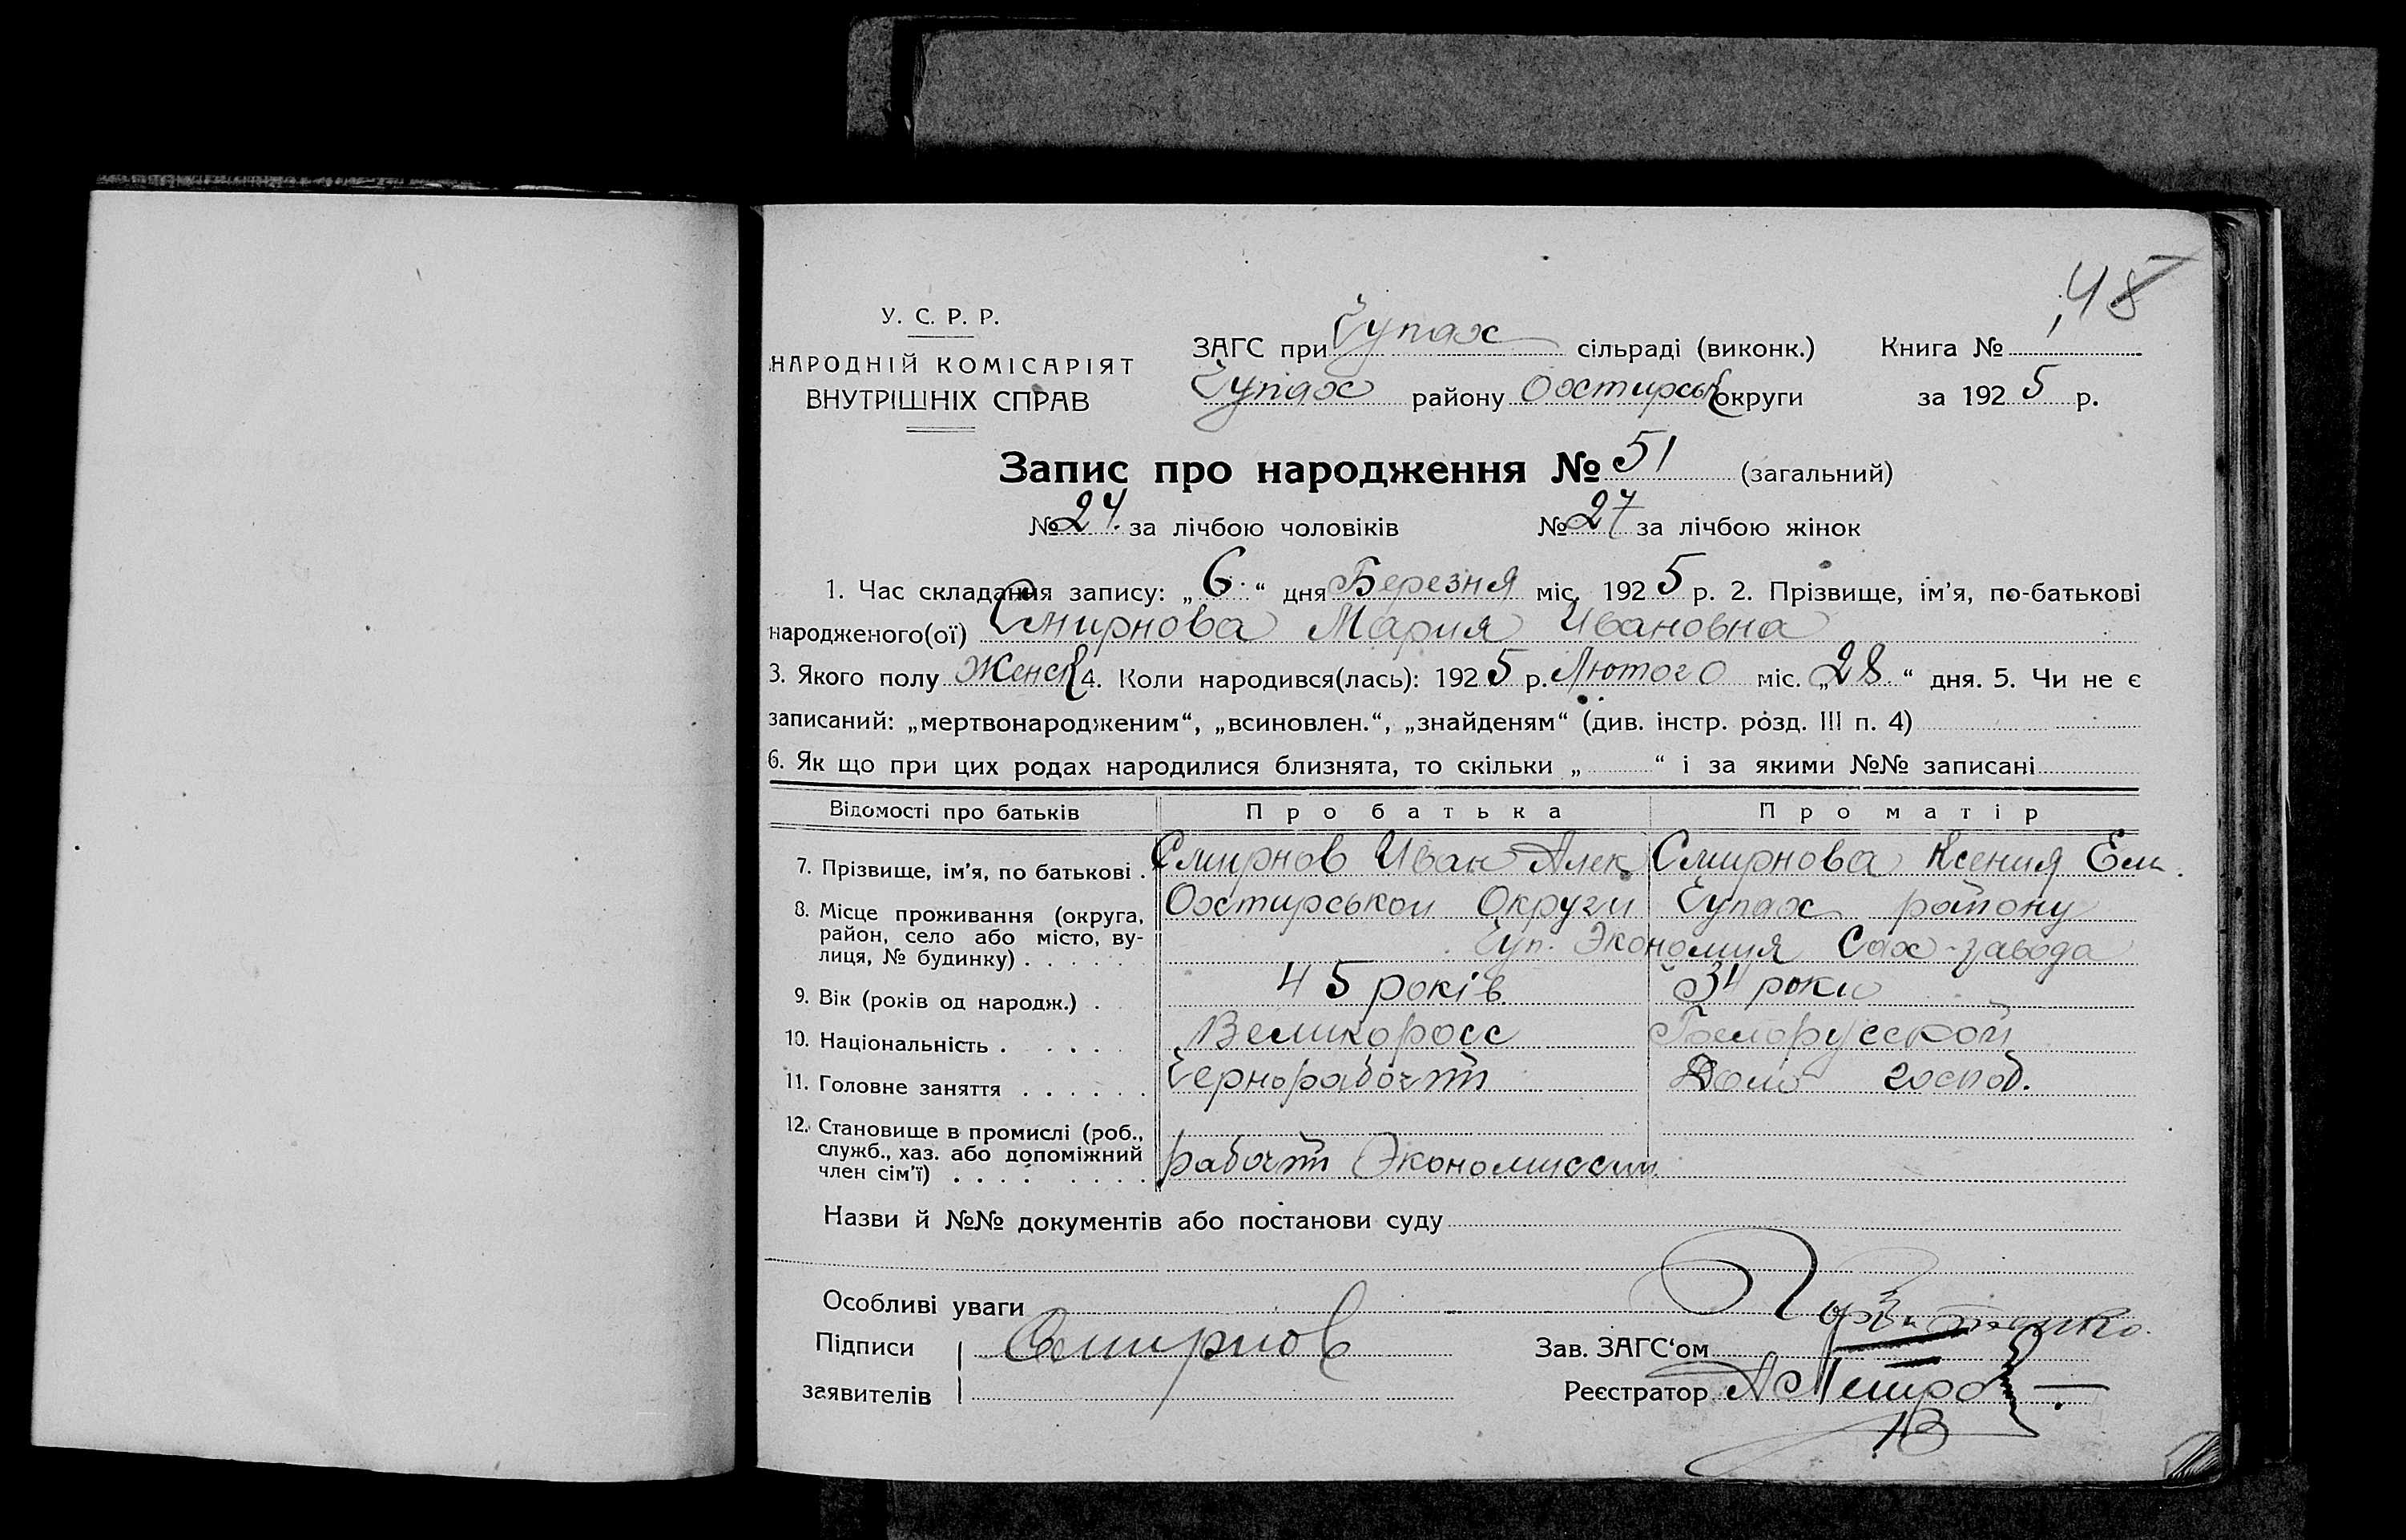 48
У. С. Р. Р.
НАРОДНІЙ КОМІСАРІЯТ
ВНУТРІШНІХ СПРАВ
ЗАГС при Чупах сільраді (виконк.) Книга №
Чупах району Охтирськ округи за 1925 р.
Запис про народження № 51 (загальний)
№ 24. за лічбою чоловіків № 27 за лічбою жінок
1. Час складання запису: „6“ дня Березня міс. 1925 р. 2. Прізвище, ім’я, по-батькові
народженого(ої) Смирнова Мария Ивановна
3. Якого полу Женск 4. Коли народився(лась): 1925 р. Лютого міс. „28“ дня. 5. Чи не є
записаний: „мертвонародженим“, „всиновлен.“, „знайденям“ (див. інстр. розд. III п. 4)
6. Як що при цих родах народилися близнята, то скільки „ “ і за якими №№ записані
Відомості про батьків Про батька Про матір
7. Прізвище, ім’я, по батькові . Смирнов Иван Алек Смирнова Ксения Ем.
8. Місце проживання (округа, район, село або місто, вулиця, № будинку) . . . . . Охтирськои Округи Чупах району
Чуп. Экономия Сах-завода
9. Вік (років од народж.) . 45 років 34 роки
10. Національність . . . . . Великоросс Белорусской
11. Головне заняття . . . . . . Чернорабочій Дом господ.
12. Становище в промислі (роб., служб., хаз. або допоміжний член сім’ї) . . . . . . . . рабочій Экономиссии
Назви й №№ документів або постанови суду
Особливі уваги
Підписи Смирнов Зав. ЗАГС‘ом
заявителів Реєстратор